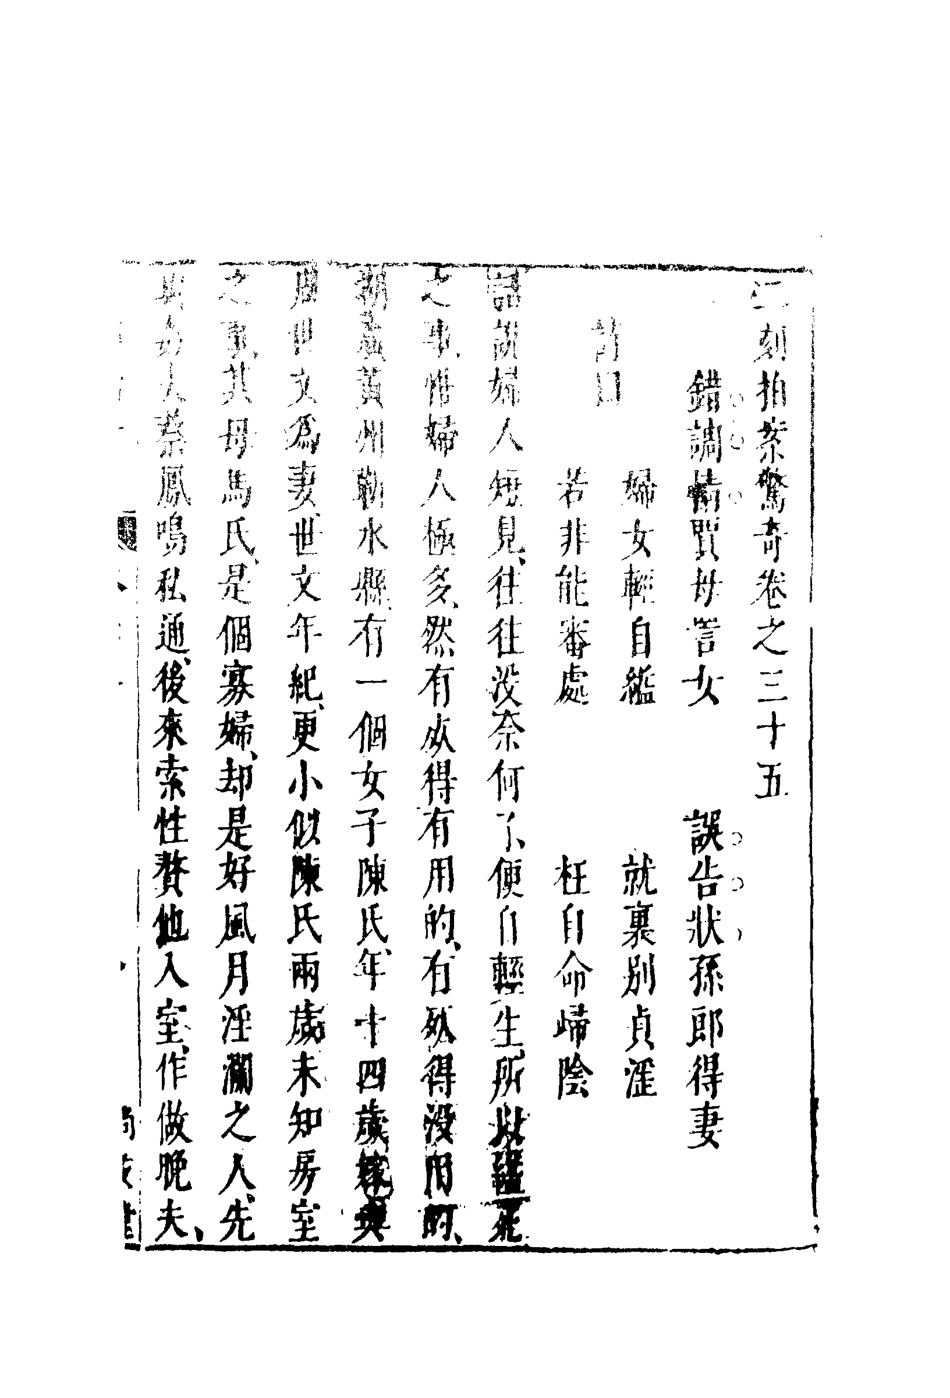 二刻拍案驚奇卷之三十五
錯調情賈母詈女　誤告狀孫郎得妻
詩曰
婦女輕自縊　就裏別貞淫
若非能審處　枉自命歸陰
話說婦人短見、往往沒奈何了、便自輕生、所以縊死
之事、惟婦人極多、然有死得有用的、有死得沒用的、
湖廣黃州蘄水縣有一個女子陳氏、年十四歲、嫁與
周世文爲妻、世文年紀更小似陳氏兩歲、未知房室
之事、其母馬氏、是個寡婦、却是好風月淫濫之人、先
與奸夫蔡鳳鳴私通、後來索性贅他入室、作做晚夫、
尚友堂